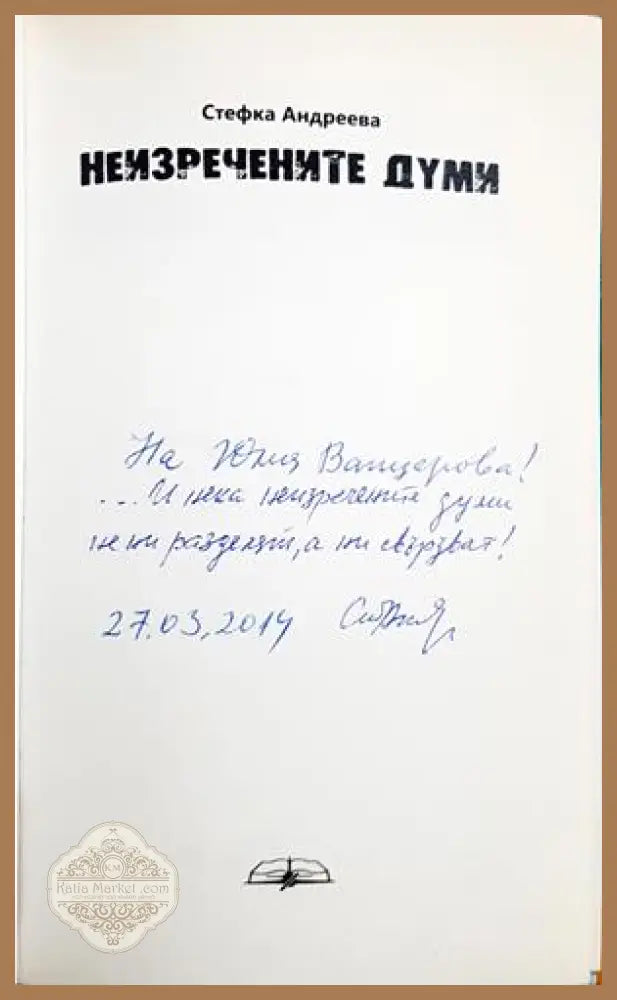 Стефка Андреева
НЕИЗРЕЧЕНИТЕ ДУМИ
На Юлия Ванцерова!
...И нека неизречените думи
не ни разделят, а ни свързват!
27.03.2014
KM
Katia Market.com